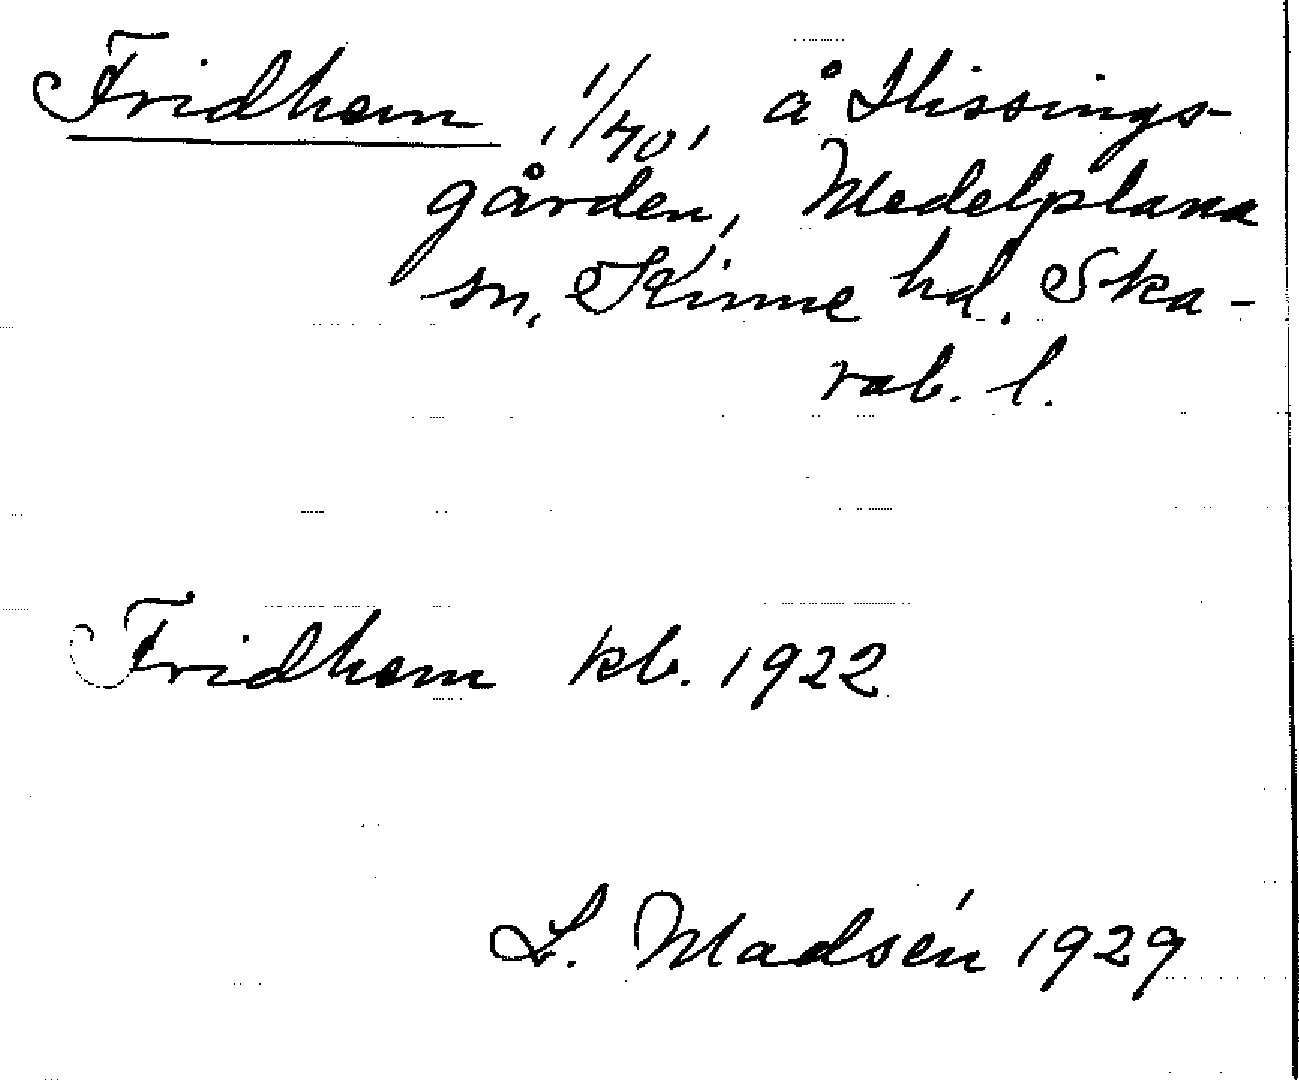 Fridhem, 1/40, å Hissings-
gården, Medelplana
sn, Kinne hd. Ska-
rab. l.
Fridhem kb. 1922
L. Madsén 1929